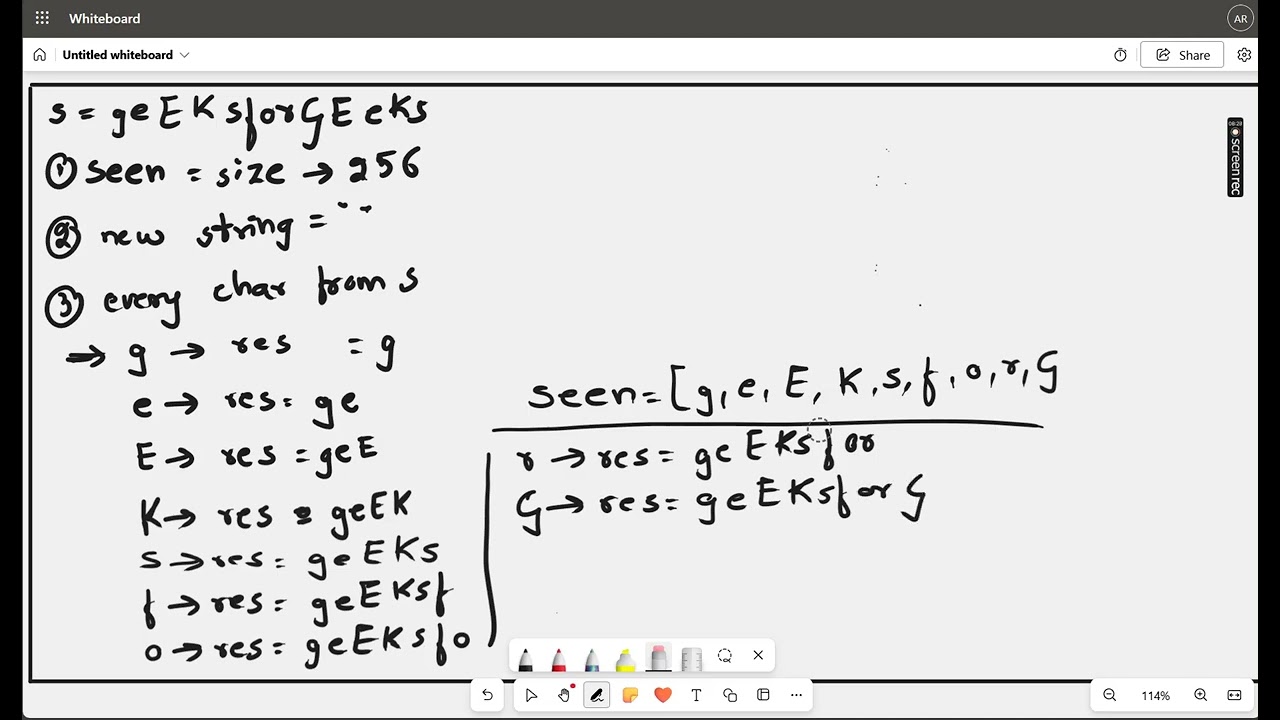 Whiteboard
AR
Untitled whiteboard
Share
s = geEKsforGEeKs
① seen = size → 256
② new string = " "
③ every char from s
⇒ g → res = g
e → res = ge
E → res = geE
K → res = geEK
s → res = geEKs
f → res = geEKsf
o → res = geEKsfo
seen = [g, e, E, K, s, f, o, r, G
r → res = geEKsfor
G → res = geEKsforG
screen rec
114%